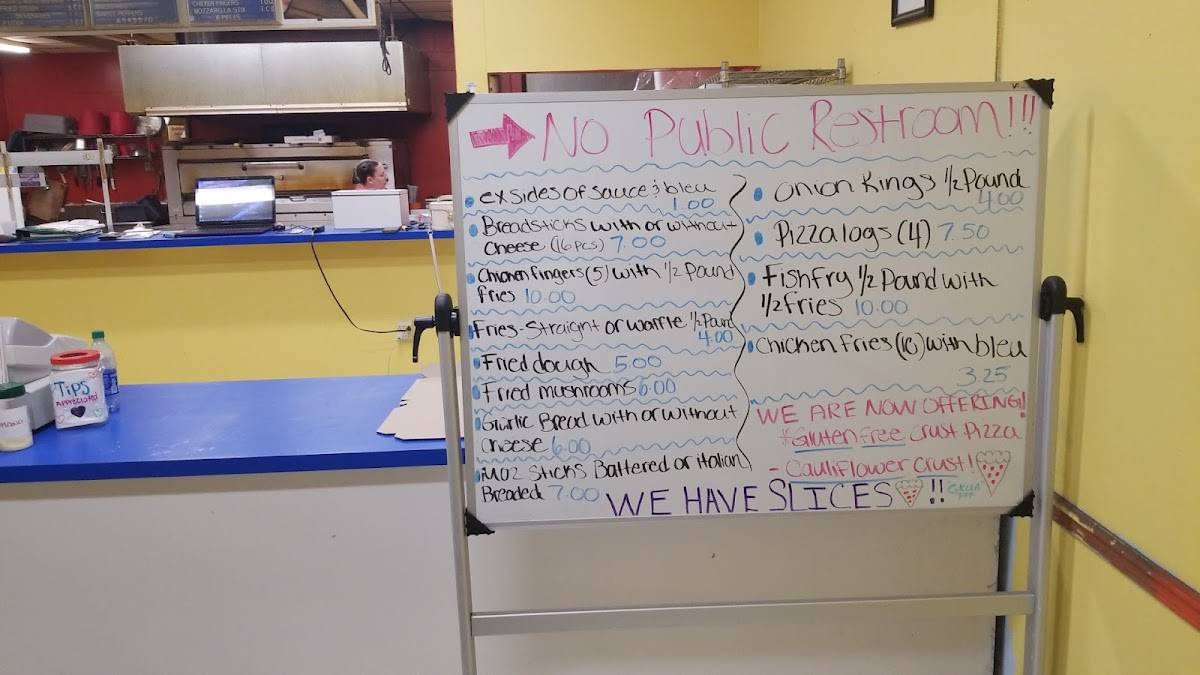 CHICKEN FINGERS
MOZZARELLA STIX
6 PIECES
No Public Restroom!!!
• ex sides of sauce & bleu
1.00
• Breadsticks with or without
cheese (16 pcs) 7.00
• Chicken fingers (5) with 1/2 Pound
fries 10.00
• Fries - Straight or waffle 1/2 Pound
4.00
• Fried dough 5.00
• Fried mushrooms 6.00
• Garlic Bread with or without
cheese 6.00
• Moz Sticks Battered or italian
Breaded 7.00
• Onion Rings 1/2 Pound
4.00
• Pizza logs (4) 7.50
• Fish Fry 1/2 Pound with
1/2 fries 10.00
• Chicken fries (10) with bleu
3.25
WE ARE NOW OFFERING!!
*Gluten free crust Pizza
- Cauliflower crust!
WE HAVE SLICES !!
TIPS
APPRECIATED